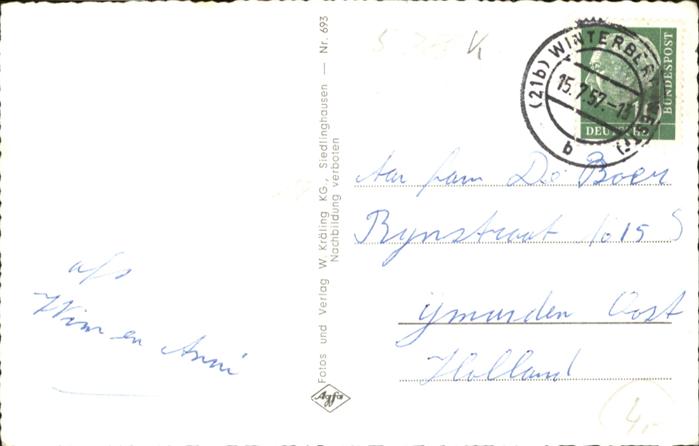 afs
Wim en Anni
Fotos und Verlag W. Kräling KG., Siedlinghausen — Nr. 693
Nachbildung verboten
Agfa
K
(21b) WINTERBERG (WESTF)
15.7.57.-13
b
DEUTSCHE
BUNDESPOST
Aan fam De Boer
Rynstraat 
Ymuiden Oost
Holland
4,-